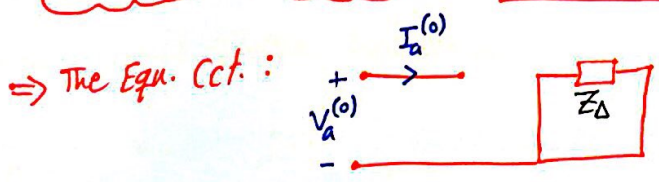 ⇒ The Equ. Cct. :
I_a^(0)
+
V_a^(0)
-
Z_Δ